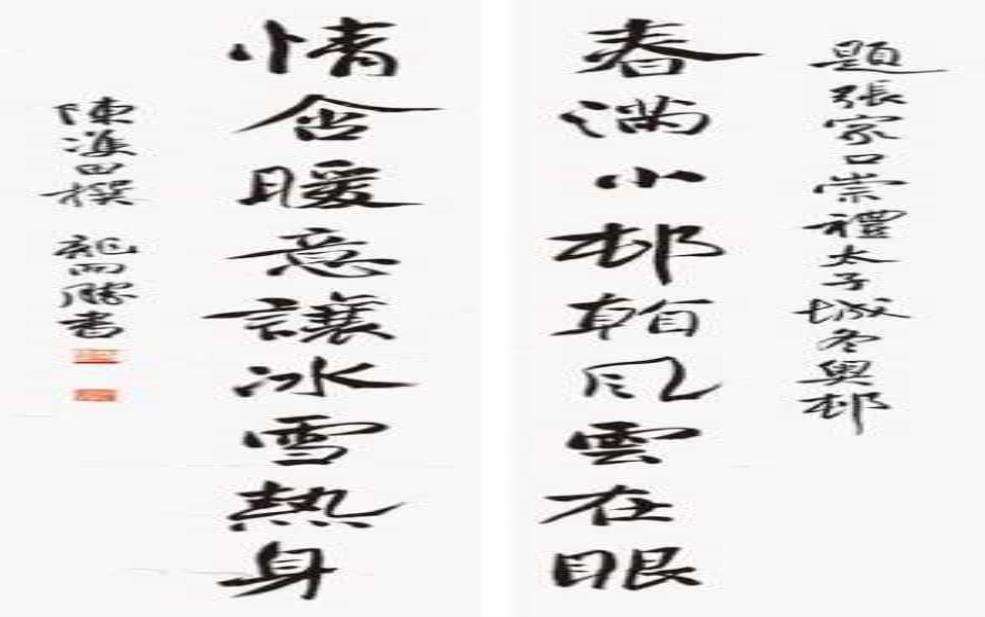 題張家口崇禮太子城冬奧邨
春滿小邨朝風雲在眼
情含暖意讓冰雪熱身
陳田撰 龍開勝書